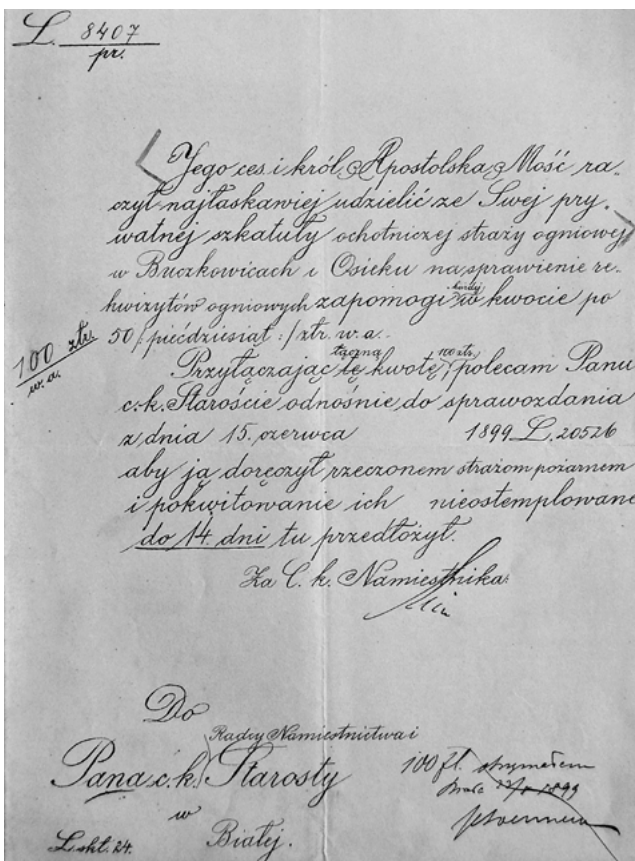 L. 8407
pr.
Jego ces. i król. Apostolska Mość ra-
czył najłaskawiej udzielić ze Swej pry-
watnej szkatuły ochotniczej straży ogniowej
w Buczkowicach i Osieku na sprawienie re-
kwizytów ogniowych zapomogi każdej w kwocie po
50 /: pięćdziesiąt :/ złr. w. a.
100 złr.
w. a.
Przyłączając tę łączną kwotę 100 złr. polecam Panu
c. k. Staroście odnośnie do sprawozdania
z dnia 15. czerwca 1899 L. 20526
aby ją doręczył rzeczonem strażom pożarnem
i pokwitowanie ich nieostemplowane
do 14 dni tu przedłożył.
Za C. k. Namiestnika:
Do
Radcy Namiestnictwa i
Pana c. k. Starosty
w
Białej.
100 fl. otrzymałem
1899
L. skt. 24.